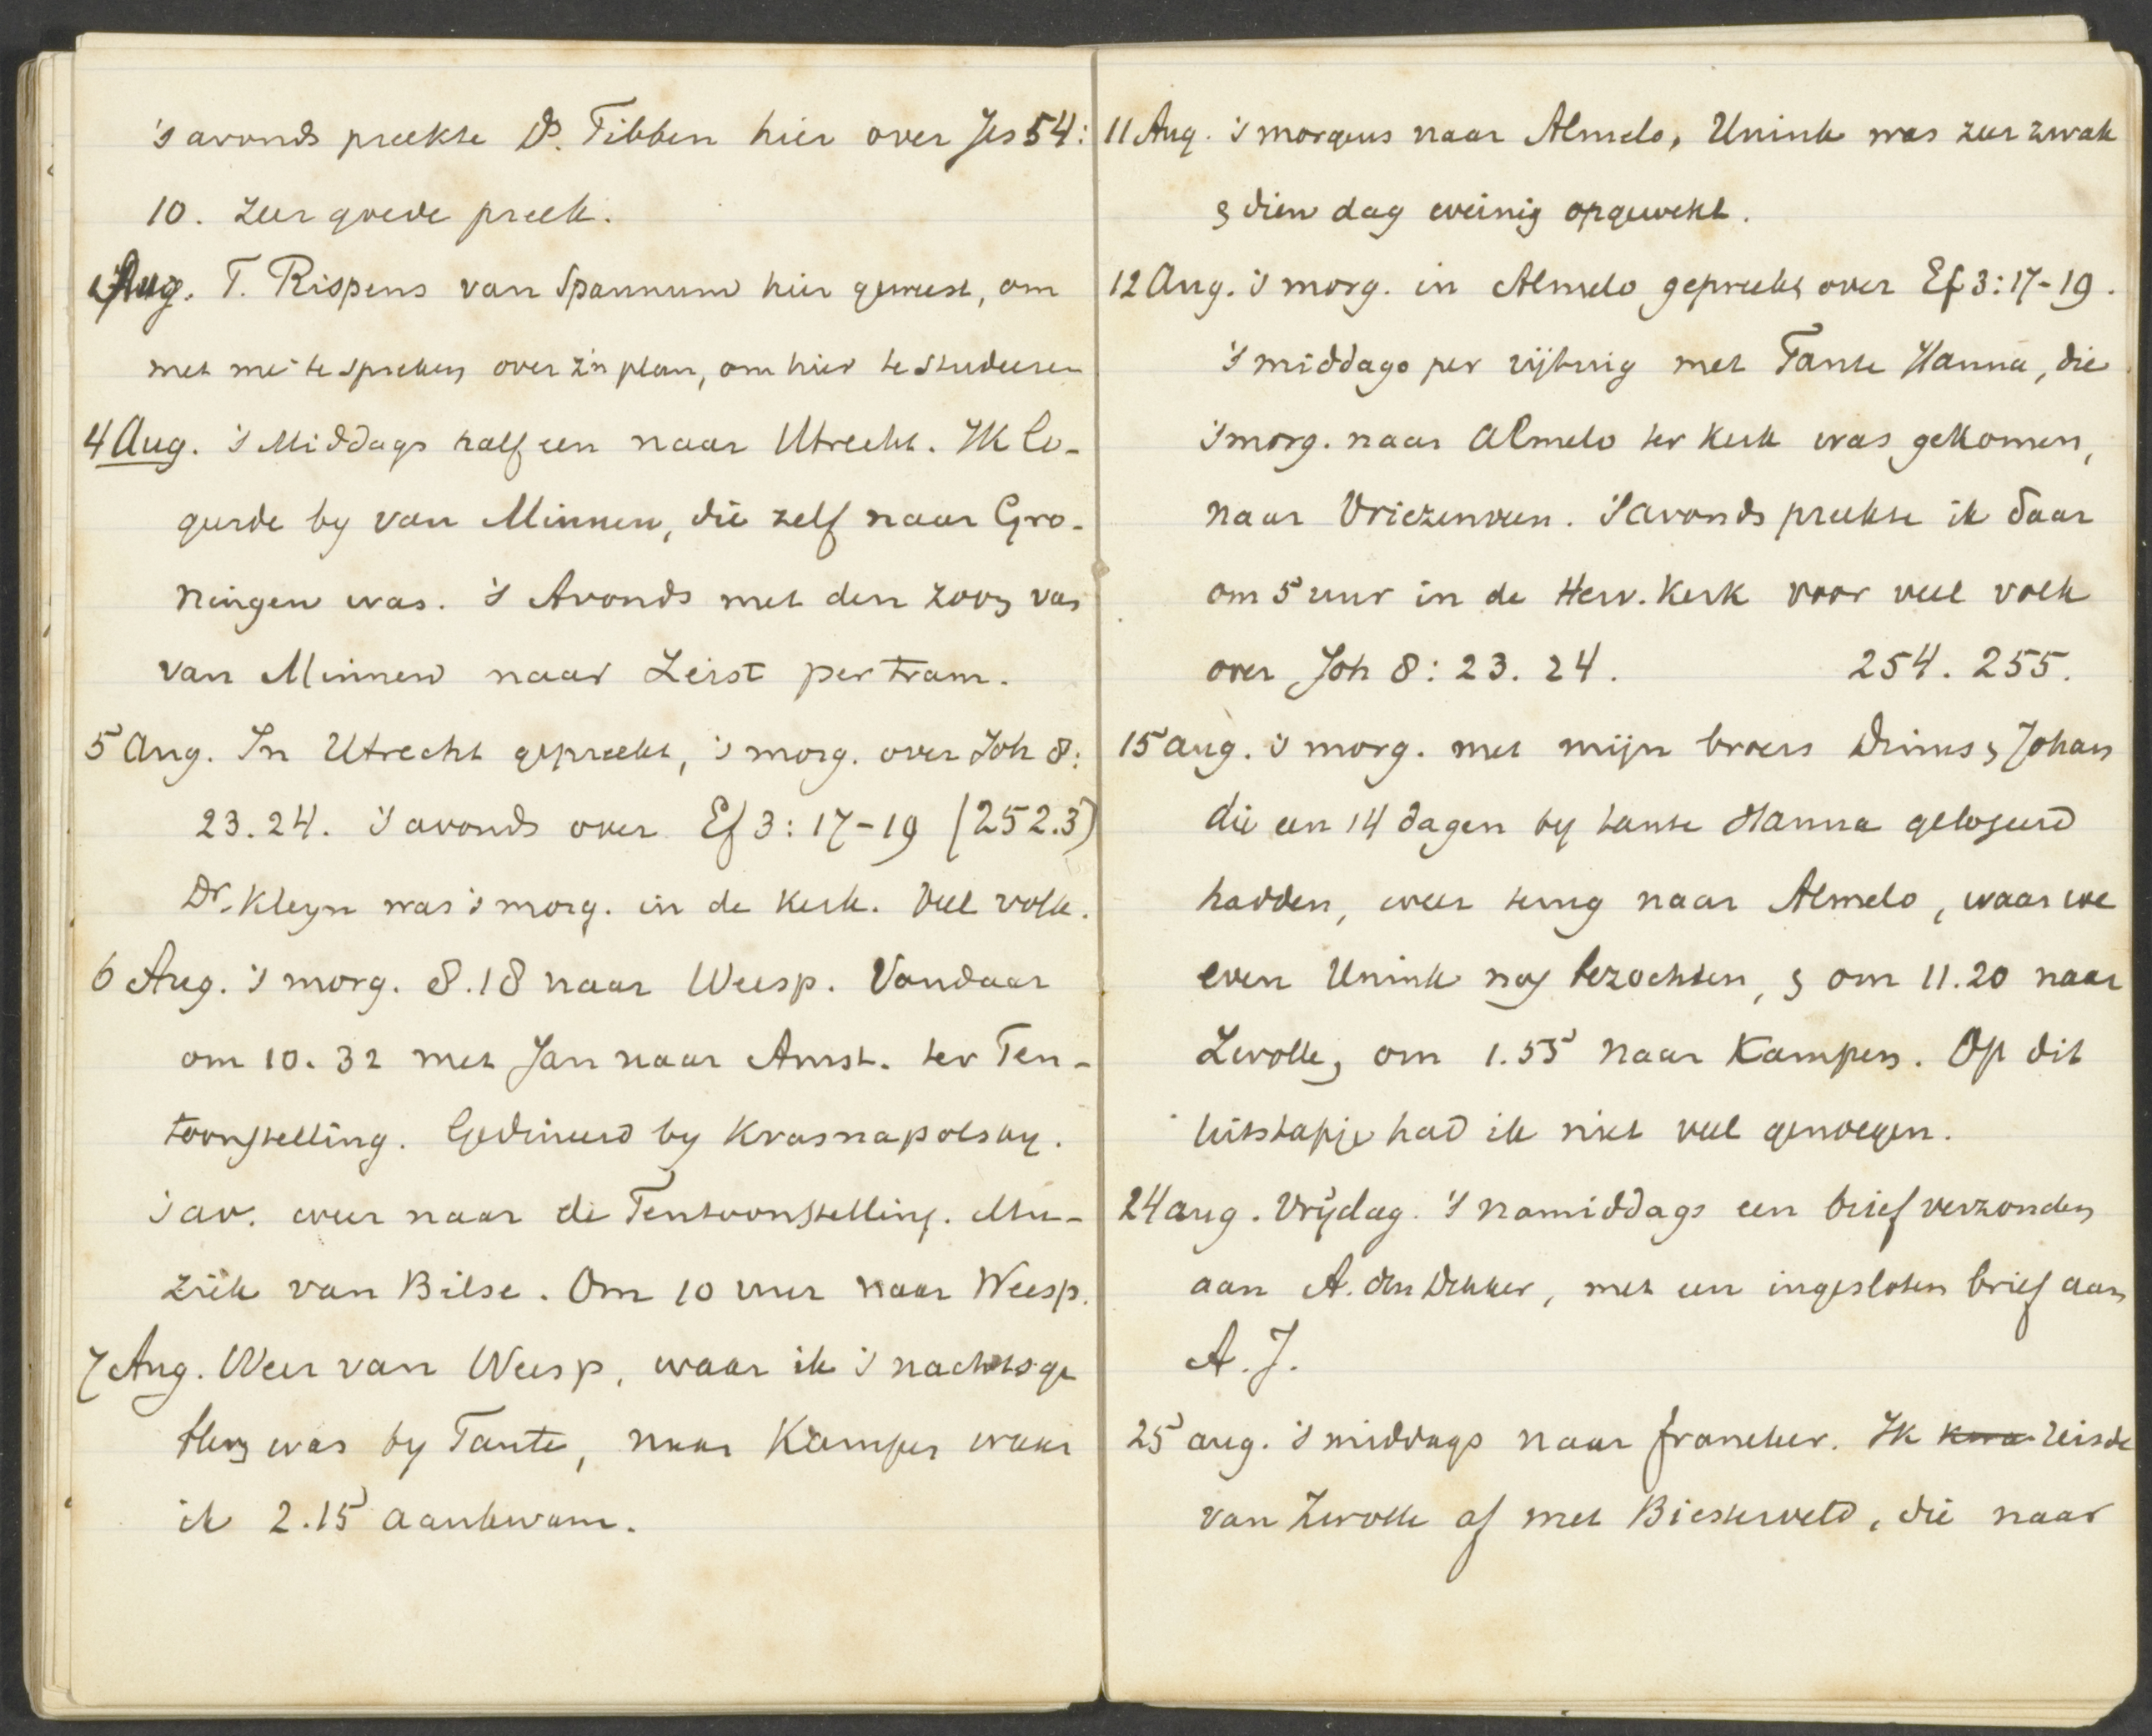 's avonds preekte Ds. Tibben hier over Jes 54:
10. zeer goede preek.
Aug. T. Rispens van Spannum hier geweest, om
met mij te spreken over z'n plan, om hier te studeeren
4 Aug. 's Middags half een naar Utrecht. Ik lo-
geerde by van Minnen, die zelf naar Gro-
ningen was. 's Avonds met den zoon van
van Minnen naar Zeist per tram.
5 Aug. In Utrecht gepreekt, 's morg. over Joh 8:
23.24. 's avonds over Ef 3: 17-19 (252.3)
Dr. Kleyn was 's morg. in de kerk. Veel volk.
6 Aug. 's morg. 8.18 naar Weesp. Vandaar
om 10.32 met Jan naar Amst. ter Ten-
toonstelling. Gedineerd by Krasnapolsky.
's av. weer naar de Tentoonstelling. Mu-
ziek van Bilse. Om 10 uur naar Weesp.
7 Aug. Weer van Weesp, waar ik 's nachts ge
bleven was by Tante, naar Kampen waar
ik 2.15 aankwam.
11 Aug. 's morgens naar Almelo, Unink was zeer zwak
& dien dag weinig opgewekt.
12 Aug. 's morg. in Almelo gepreekt over Ef 3: 17-19.
's middags per rijtuig met Tante Hanna, die
's morg. naar Almelo ter kerk was gekomen,
naar Vriezenveen. 's avonds preekte ik daar
om 5 uur in de Herv. Kerk voor veel volk
over Joh 8: 23. 24. 254. 255.
15 aug. 's morg. met mijn broers Dinus & Johan
die een 14 dagen by tante Hanna gelogeerd
hadden, weer terug naar Almelo, waar we
even Unink nog bezochten, & om 11.20 naar
Zwolle, om 1.55 naar Kampen. Op dit
uitstapje had ik niet veel genoegen.
24 aug. Vrijdag. 's namiddags een brief verzonden
aan A. den Dekker, met een ingesloten brief aan
A. J.
25 aug. 's middags naar Franeker. Ik kwa reisde
van Zwolle af met Biesterveld, die naar